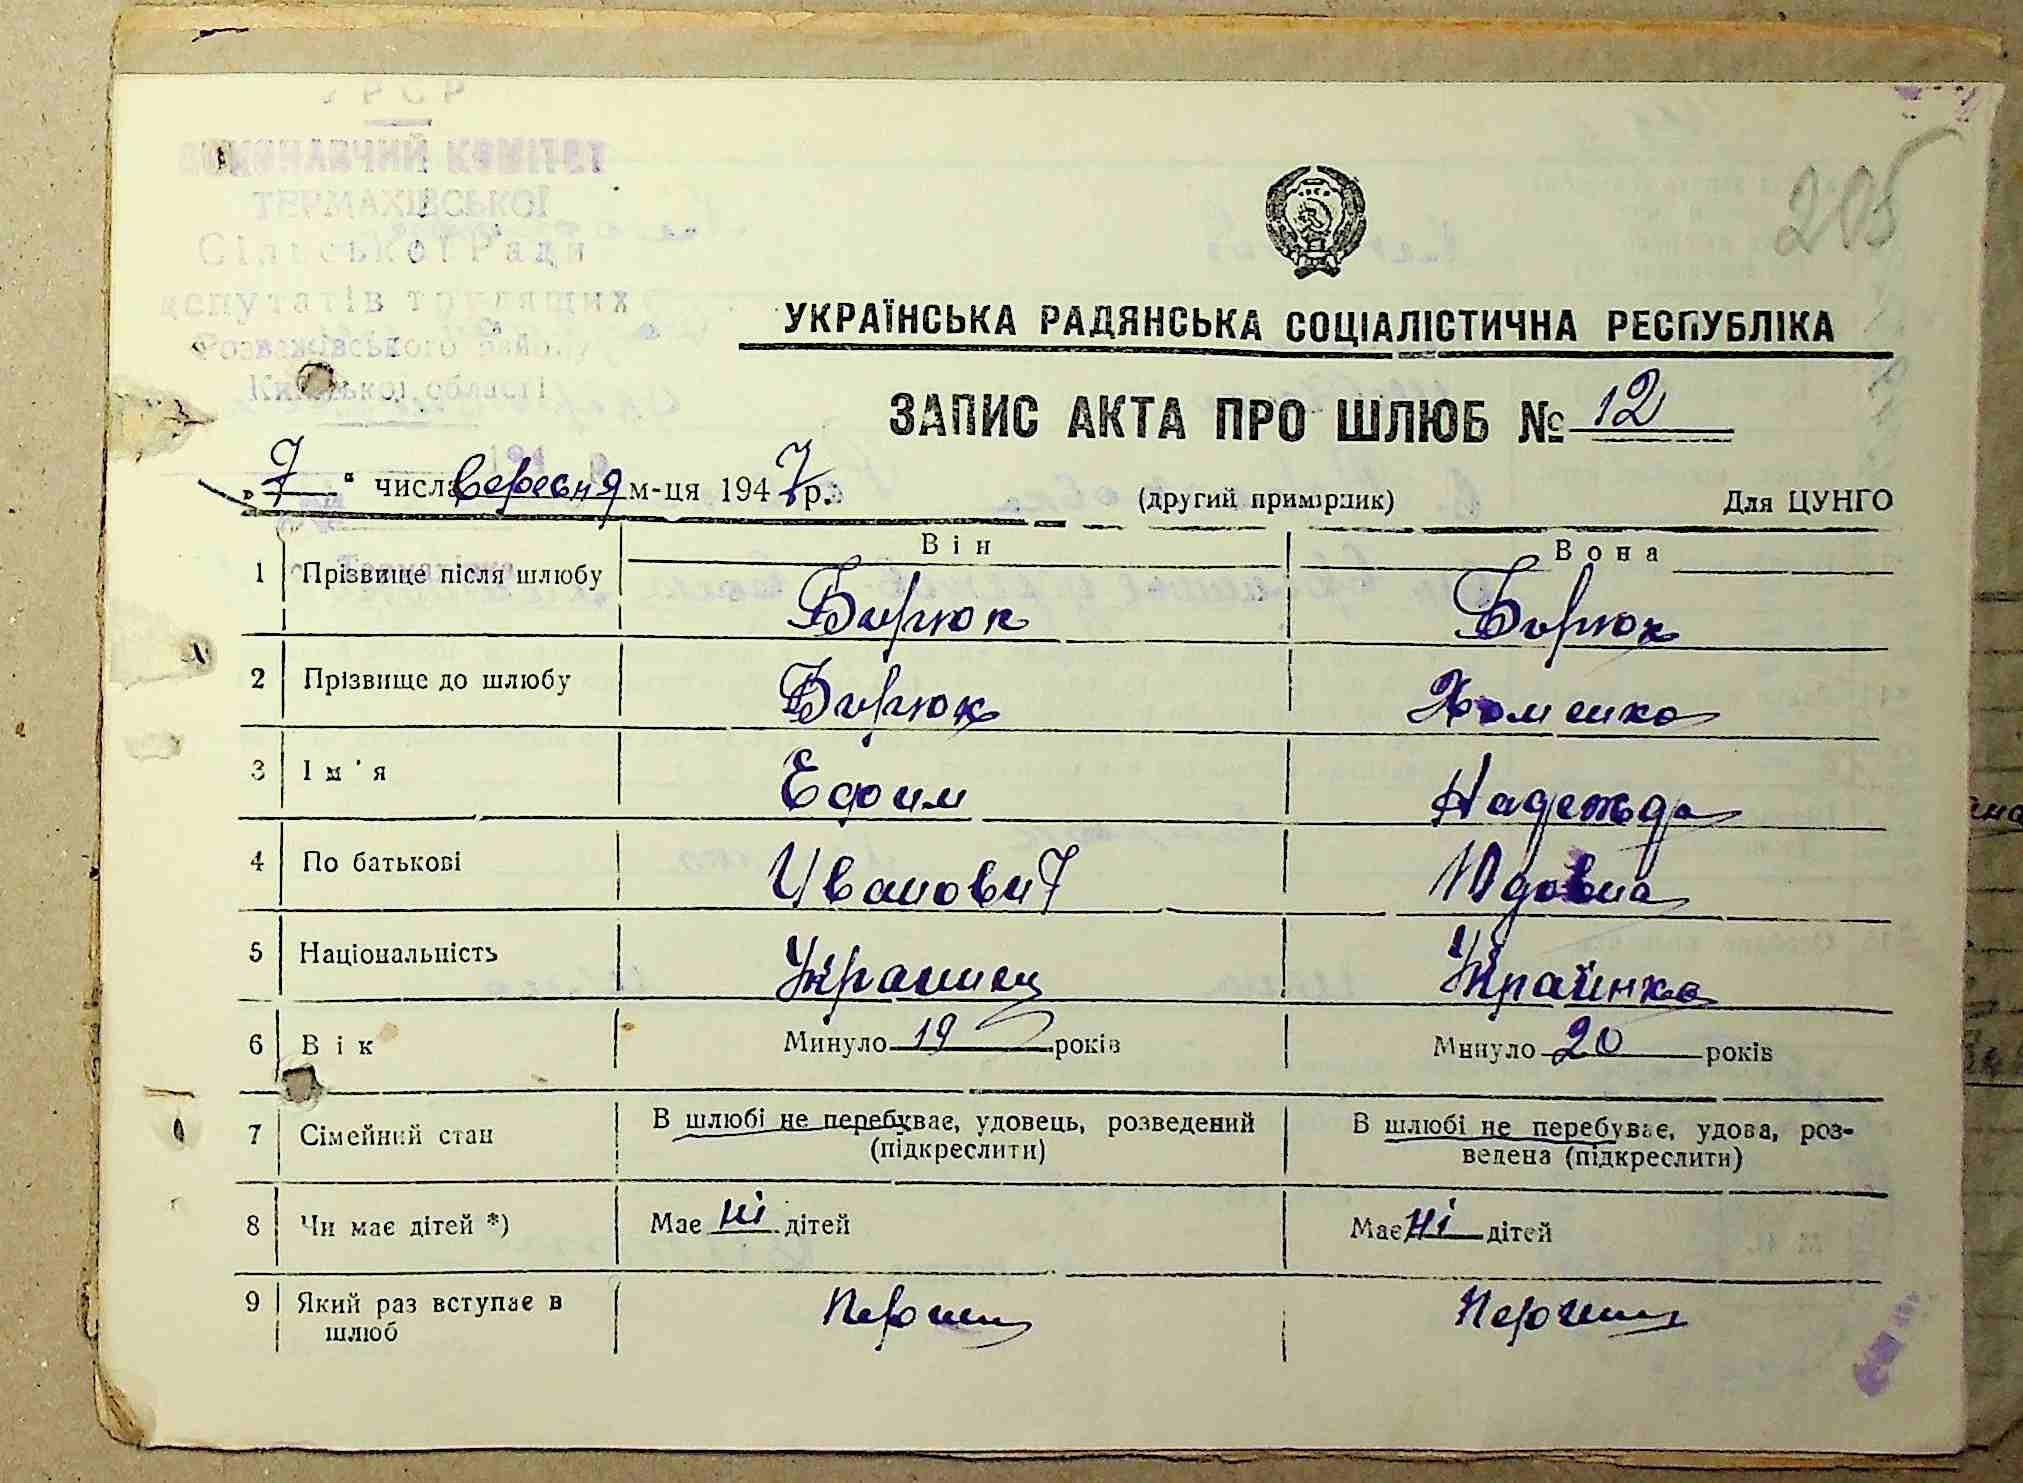 205
УКРАЇНСЬКА РАДЯНСЬКА СОЦІАЛІСТИЧНА РЕСПУБЛІКА
ЗАПИС АКТА ПРО ШЛЮБ № 12
„ 7 “ числа вересня м-ця 1947 р. (другий примірник) Для ЦУНГО
Він Вона
1 Прізвище після шлюбу Бирюк Бирюк
2 Прізвище до шлюбу Бирюк Хоменко
3 Ім'я Ефим Надежда
4 По батькові Иванович Юдовна
5 Національність Украинец Українка
6 Вік Минуло 19 років Минуло 20 років
7 Сімейний стан В шлюбі не перебуває, удовець, розведений (підкреслити) В шлюбі не перебуває, удова, роз-
ведена (підкреслити)
8 Чи має дітей *) Має ні дітей Має ні дітей
9 Який раз вступає в шлюб Перший Перший
ВИКОНАВЧИЙ КОМІТЕТ
ТЕРМАХІВСЬКОЇ
Сільської Ради
депутатів трудящих
Розважівського району
Київської області